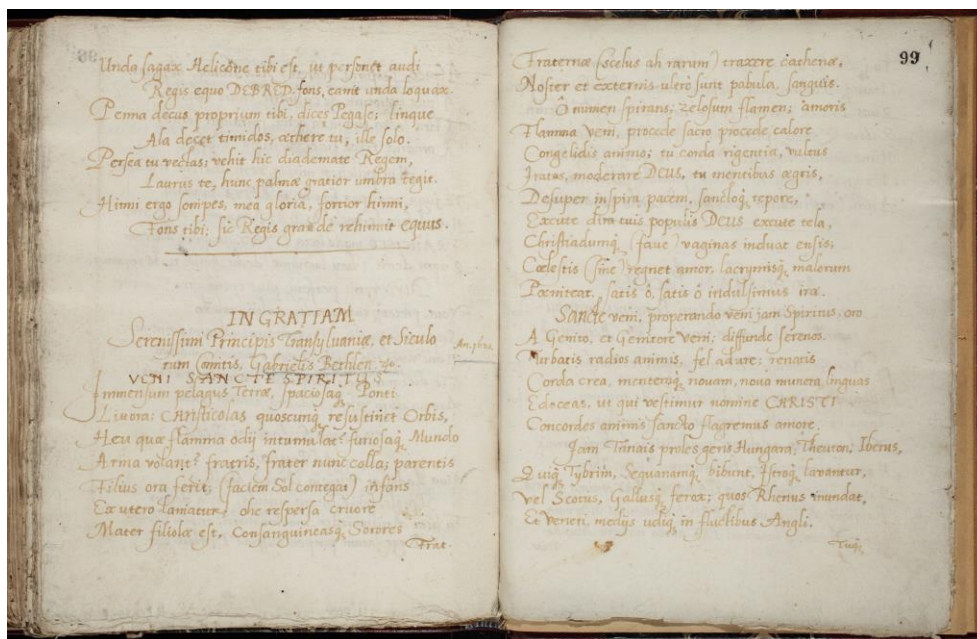 Unda sagax Helicone tibi est, ut personet audi
Regis equo DEBRED fons, canit unda loquax.
Penna decus proprium tibi, dices Pegase; linque
Ala decet timidos, æthere tu, ille solo.
Persea tu vectas; vehit hic diademate Regem,
Laurus te, hunc palmæ gratior umbra tegit.
Hinni ergo sonipes, mea gloria, fortior hinni,
Fons tibi; sic Regis grande rehinnit equus.
IN GRATIAM
Serenissimi Principis Transylvaniæ, et Siculo
rum Comitis, Gabrielis Bethlen.
An. 1622
VENI SANCTE SPIRITUS
Immensum pelagus Terræ, spaciosaq Ponti
Livora; CHRISTicolas quoscunq resustinet Orbis,
Heu quæ flamma odii intumulat? furiosaq Mundo
Arma volant? fratris, frater nunc colla; parentis
Filius ora ferit, (faciem Sol contegat) infans
Ex utero laniatur; ohe respersa cruore
Mater filiolæ est, Consanguineasq Sorores
Frat.
99
Fraternæ (scelus ah rarum) traxere cathenæ,
Noster et externis ultro sunt pabula, sanguis.
Ô numen spirans; zelosum flamen; amoris
Flamma veni, procede sacro procede calore
Congelidis animo; tu corda rigentia, vultus
Iratos, moderare DEUS, tu mentibus ægris,
Desuper inspira pacem, sancloq tepore,
Excute dira tuis populis DEUS excute tela,
Christiadumq (fave) vaginas induat ensis;
Cælestis (sine) regnet amor, lacrymisq malorum
Pæniteat, satis ô, satis ô indulsimus iræ.
Sancte veni, properando veni jam Spiritus, oro
A Genito, et Genitore veni; diffunde serenos
Turbatis radios animis, fel adure; renatis
Corda crea, mentemq novam, nova munera, linguas
Edoceas, ut qui vestimur nomine CHRISTI
Concordes animis sancto flagremus amore.
Jam Tanais proles gens Hungara, Theuton, Iberus,
Quiq Tybrim, Sequanamq bibunt, Istroq lavantur,
Vel Scotus, Gallusq ferox; quos Rhenus inundat,
Et Veneti, medys udiq in fluctibus Angli.
Tuq